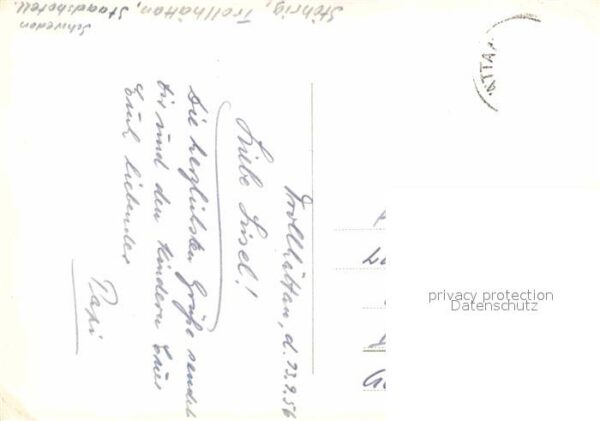 Stöhrig, Trollhättan, Staadshotell
Schweden
Trollhättan, d. 23.9.56
Liebe Liesel!
Die herzlichsten Grüße sendet
Dir und den Kindern Euer
Euch liebender
Papi
ATTA
privacy protection
Datenschutz